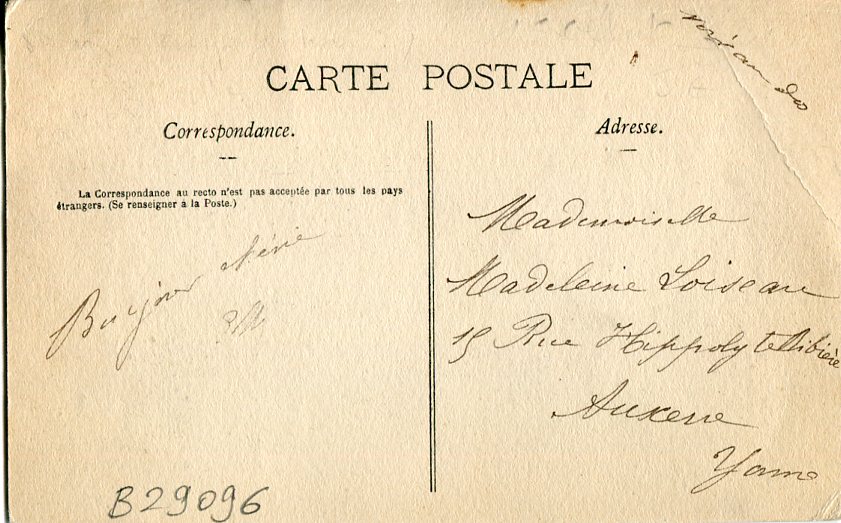 CARTE POSTALE
Correspondance.
La Correspondance au recto n'est pas acceptée par tous les pays
étrangers. (Se renseigner à la Poste.)
Bonjour chérie
B29096
Adresse.
Mademoiselle
Madeleine Loiseau
15 Rue Hippolyte Ribière
Auxerre
Yonne